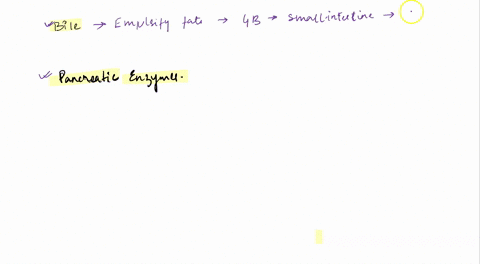 ✓ Bile → Emulsify fats → GB → small intestine →
✓ Pancreatic Enzymes.